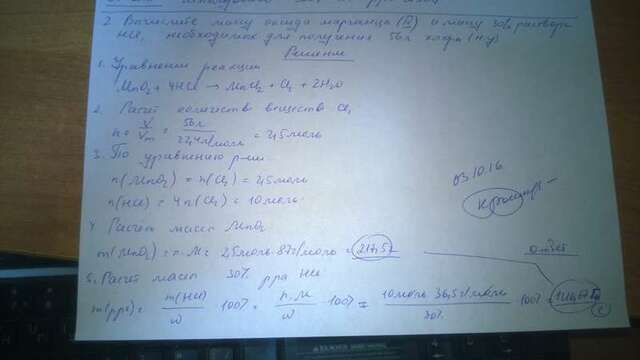 2. Вычислите массу оксида марганца (IV) и массу 30% раствора
HCl, необходимых для получения 56л хлора (н.у)
Решение
1. Уравнение реакции
MnO₂ + 4HCl → MnCl₂ + Cl₂ + 2H₂O
2. Расчет количества вещества Cl₂
n = V/Vm = 56л/22,4л/моль = 2,5моль
3. По уравнению р-ии
n(MnO₂) = n(Cl₂) = 2,5моль
n(HCl) = 4n(Cl₂) = 10моль
03.10.16
4. Расчет массы MnO₂
m(MnO₂) = n·M = 2,5моль·87г/моль = 217,5г
ответ
5. Расчет массы 30% рра HCl
m(рра) = m(HCl)/ω 100% = n·M/ω 100% = 10моль·36,5г/моль/30% 100%